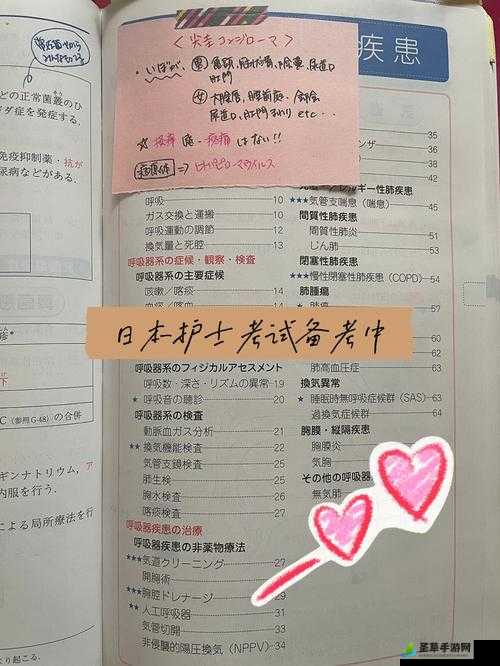 どの正常菌叢のひ
ダ症を発症する.
免疫抑制薬・抗が
尿病などがある.
C (参照G-48) の合併
ギンナトリウム, ア
内服を行う.
による局所療法を行
より起こる.
<尖圭コンジローマ>
・いぼが、
男
肛門
女
大陰唇、腟前庭、会陰
尿道口、肛門まわり etc...
はない!!
病原体 ⇒ ヒトパピローマウイルス
疾患
呼吸 10
ガス交換と運搬 10
呼吸運動の調節 12
換気量と死腔 13
呼吸器系の症候・観察・検査
呼吸器系の主要症候
咳嗽/喀痰 14
呼吸器系のフィジカルアセスメント
呼吸数・深さ・リズムの異常 19
★ 呼吸音の聴診 20
呼吸器系の検査
動脈血ガス分析 21
★★ 換気機能検査 22
気管支鏡検査 25
肺生検 25
胸水検査 26
喀痰検査 27
呼吸器疾患の治療
呼吸器疾患の非薬物療法
★★★ 気道クリーニング 27
開胸術
★★★ 胸腔ドレナージ 29
★★ 人工呼吸器 31
気管切開 33
非侵襲的陽圧換気 (NPPV) 34
35
36
38
40
★★★ 気管支喘息 (喘息) 45
間質性肺疾患
間質性肺炎 51
じん肺 53
閉塞性肺疾患
★★★ 慢性閉塞性肺疾患 (COPD) 54
肺腫瘍
57
60
62
肺高血圧症 63
換気異常
★ 睡眠時無呼吸症候群 (SAS) 63
過換気症候群 64
胸膜・縦隔疾患
胸膜炎
気胸
その他の呼吸器
無気肺
日本护士考试备考中
圣草手游网